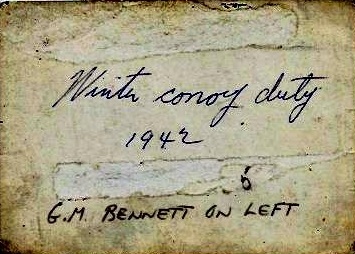 Winter conoy duty
1942
5
G.M. BENNETT ON LEFT